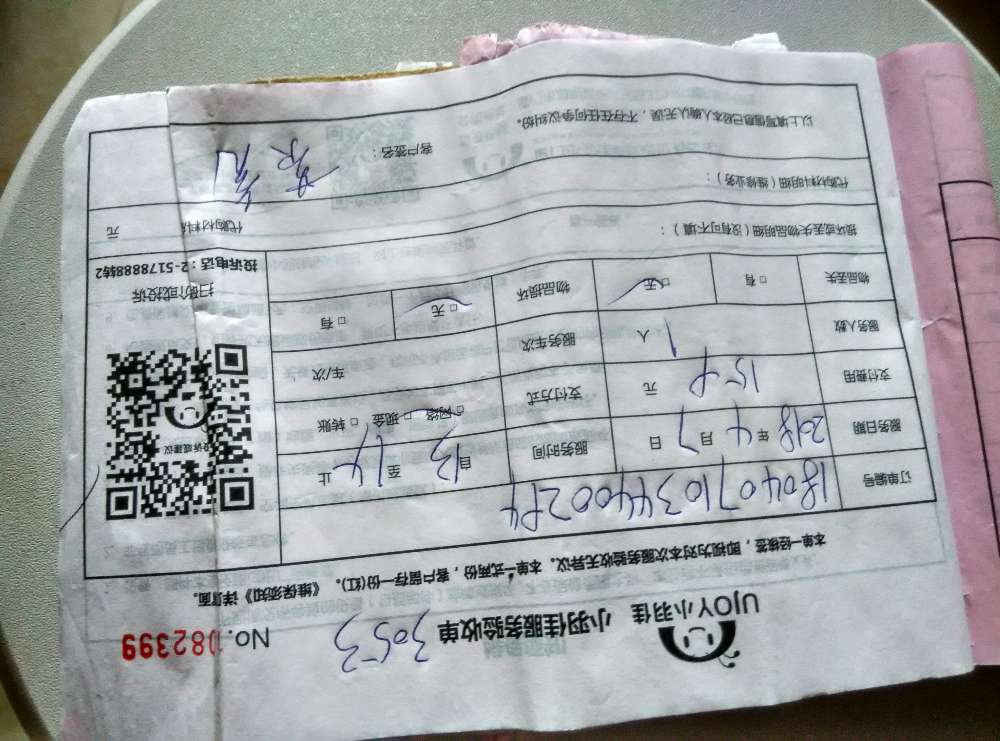 UJOY小羽佳 小羽佳服务验收单 3053 No. 082399
本单一经接签，即视为对本次服务验收无异议。本单一式两份，客户留存一份(红)。《维保须知》详页面。
订单编号
服务日期 2018年4月7日 服务时间 自13至14止
支付费用 元 支付方式 □网络 □现金 □转账
服务人数 1人 服务车次 车/次
物品丢失 □有 □无 物品损坏 □无 □有
投诉或建议
扫码评价或投诉
投诉电话：2-5178888转2
损坏或丢失物品明细（没有可不填）：
代购材料明细（维修业务）： 代购材料 元
以上填写信息已经本人确认无误，不存在任何争议纠纷。
客户签名：